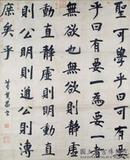 聖可學乎曰可有要
乎曰有一為要一者
無欲也無欲則靜虛
動直靜虛則明明
則公明則通公溥
庶矣乎